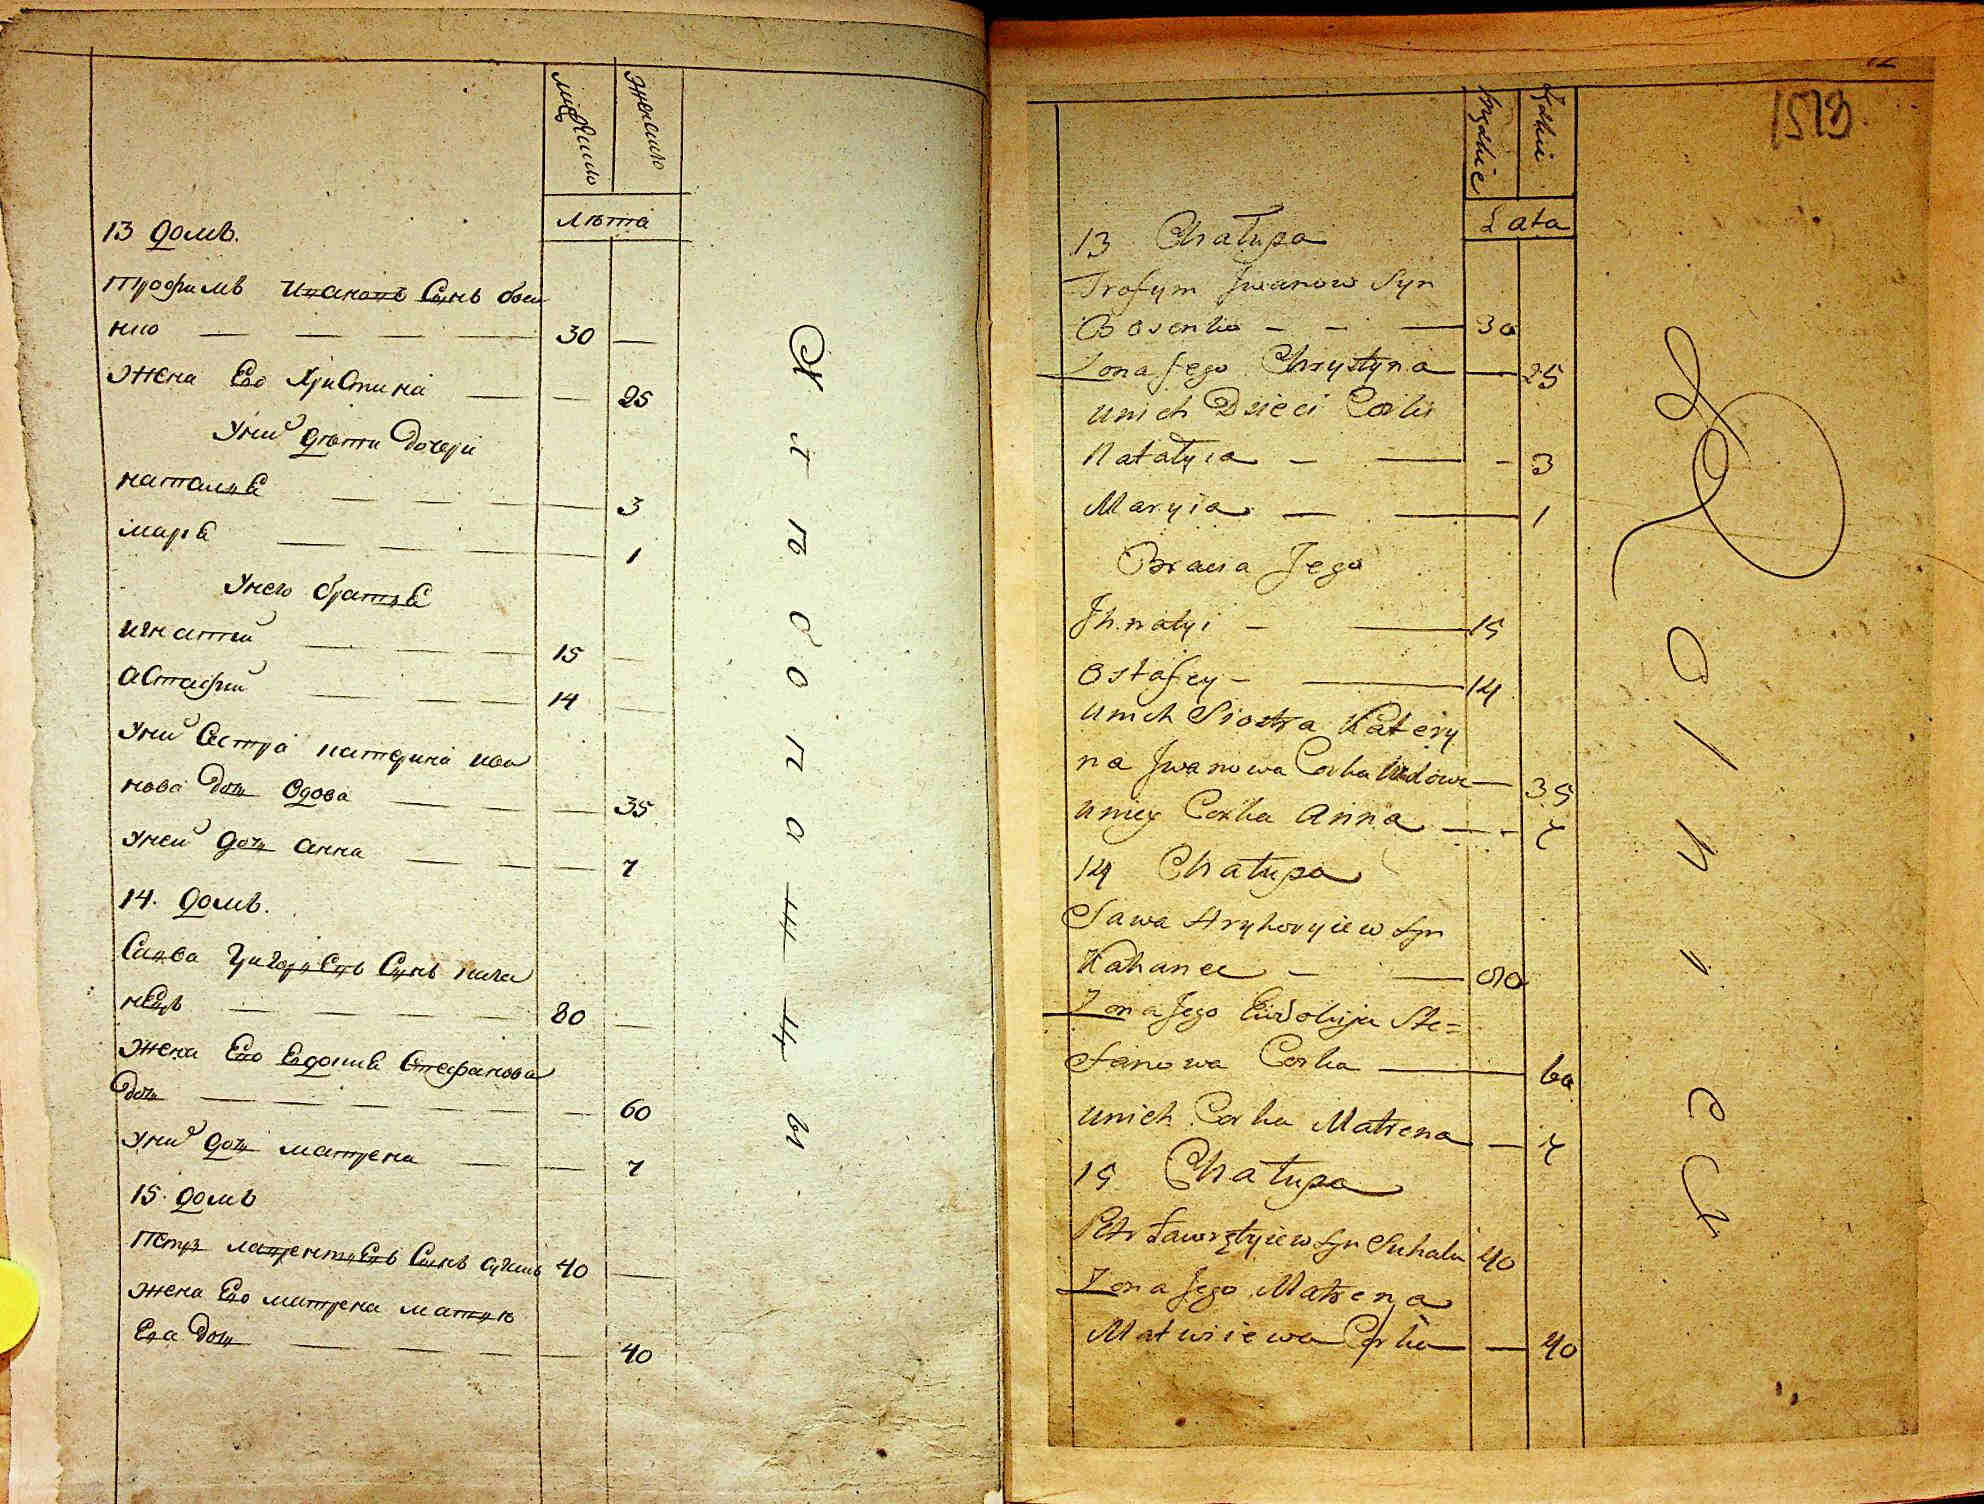 мужеско
женско
лѣта
13 домъ.
Трофимъ Ивановъ Сынъ босе
нко — — — — 30 —
жена Его Христина — — 25
У них дѣти дочери
наталия — — — 3
мария — — — 1
У него братья
игнатий — — — 15 —
Астафий — — — 14 —
У них Сестра катерина ива
нова дочь вдова — — — 35
У ней дочь анна — — — 7
14. домъ.
Савва григориевъ Сынъ кага
нецъ — — — — 80 —
жена Его Евдокия Стефанова
дочь — — — — — 60
У них дочь матрена — — 7
15. домъ
Петръ лаврентиевъ Сынъ 40 —
жена Его матрена матвѣ
ева дочь — — — — 40
1513
Męzkie
Żeńskie
Lata
13 Chałupa
Trofym Jwanow Syn
Bosenko - - — 30
Zona Jego Chrystyna — 25
unich Dzieci Corki
Natalyia - — - 3
Maryia - — 1
Bracia Jego
Jhnatyi - — 15
Ostafey - — 14
unich Siostra Katery
na Jwanowa Corka Wdowa — 35
uniey Corka Anna — - 7
14 Chałupa
Sawa Hryhoryiew Syn
Kahanec - — 80
Zona Jego Ewdokija Ste=
fanowa Corka — 60
unich Corka Matrena — 7
15 Chałupa
Petr Ławrętyiew Syn Suhak 40
Zona Jego Matrena
Matwiiewa Corka — — 40